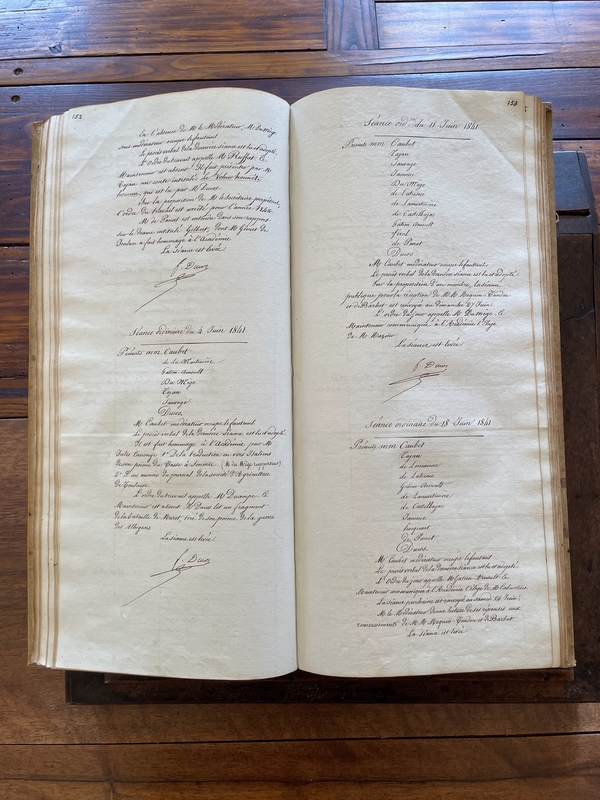 152
En l'absence de M. le Modérateur, M. Dumège
sous modérateur occupe le fauteuil
Le procès verbal de la dernière séance est lu et adopté.
L'ordre du travail appelle M. Ruffat. Ce
Mainteneur est absent. Il fait présenter par M.
Cajan, un conte intitulé Le Voleur honnête
homme, qui est lu par M. Ducos.
Sur la proposition de M. le Secrétaire perpétuel,
l'ordre du travail est arrêté pour l'année 1842.
M. de Panat est entendu dans son rapport
sur le drame intitulé Gilbert, dont M.
Toulon a fait hommage à l'Académie
La séance est levée
f. Ducos
Séance ordinaire du 4 Juin 1841.
Présents mm. Caubet
de la
Gatien-Arnoult
Du Mège
Cajan
Sauvage
Ducos.
M. Caubet modérateur occupe le fauteuil.
Le procès verbal de la dernière séance est lu et adopté.
Il est fait hommage à l'Académie par M.
Jules 1° De la traduction en vers italiens
d'un poème du Tasse à (M. du Mège rapporteur)
2° D'un numéro du journal de la société d'Agriculture
de Toulouse.
L'ordre du travail appelle M. Decampe. Ce
Mainteneur est absent. M. Ducos lit un fragment
de la bataille de Muret, tiré de son poème de la guerre
des Albigeois
La séance est levée
f. Ducos
153
Séance ord.re du 11 Juin 1841
Présents mm Caubet
Cajan
Sauvage
Jamme
Du Mège
de Latresne
de Lamartinière
de Castelbajac
Gatien-Arnoult
Féral
de Panat
Ducos
M. Caubet modérateur occupe le fauteuil.
Le procès verbal de la dernière séance est lu et adopté.
Sur la proposition d'un membre, la séance
publique pour la réception de M.M. Moquin-Tandon
et de Barbot est renvoyée au Dimanche 27 Juin.
L'ordre du jour appelle M. Dumège. Ce
Mainteneur communique à l'Académie l'éloge
de M.
La séance est levée
f. Ducos
Séance ordinaire du 18 Juin 1841
Présents mm Caubet
Cajan
de
de Latresne
Gatien-Arnoult
de Lamartinière
de Castelbajac
Jamme
de Panat
Ducos.
M. Caubet modérateur occupe le fauteuil.
Le procès verbal de la dernière séance est lu et adopté.
L'ordre du jour appelle M. Gatien-Arnoult. Ce
Mainteneur communique à l'Académie l'éloge de M.
La séance prochaine est renvoyée au Samedi 26 Juin.
M. le Modérateur donne lecture de ses réponses aux
remerciements de M.M. Moquin-Tandon et de Barbot
La séance est levée